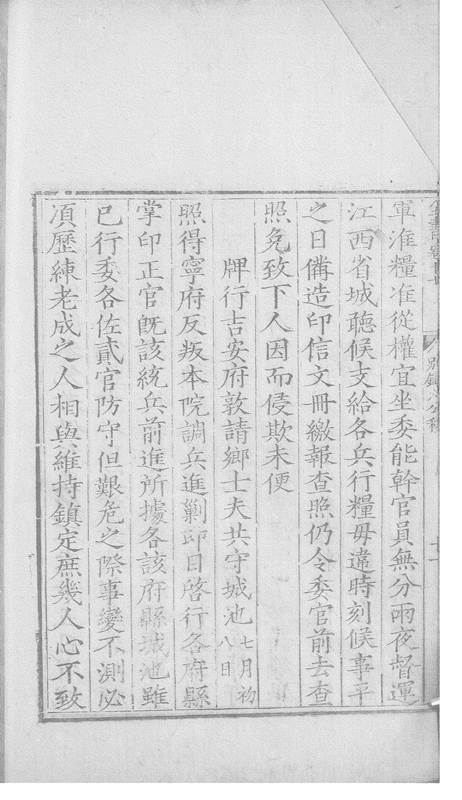 軍淮糧准從權宜坐委能幹官員無分雨夜督運
江西省城聽候支給各兵行糧毋違時刻候事平
之日備造印信文冊繳報查照仍令委官前去查
照免致下人因而侵欺未便
牌行吉安府敦請鄉士夫共守城池七月初八日
照得寧府反叛本院調兵進剿即日啓行各府縣
掌印正官既該統兵前進所據各該府縣城池雖
已行委各佐貳官防守但艱危之際事變不測必
須歷練老成之人相與維持鎮定庶幾人心不致